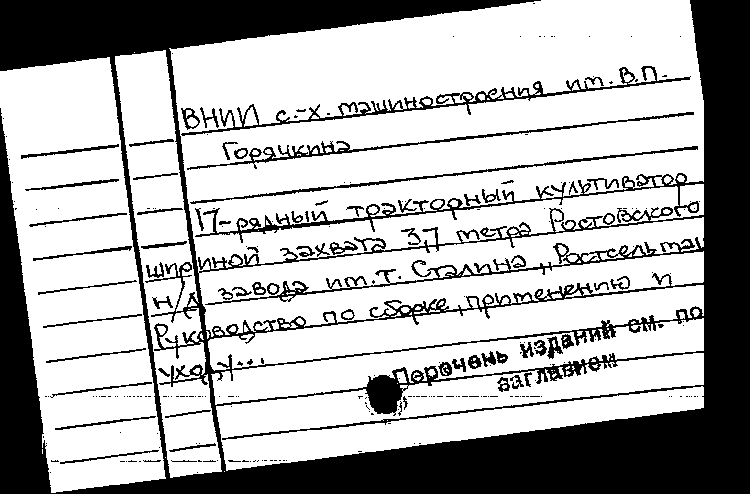 ВНИИ с.-х. машиностроения им. В.П.
Горячкина
17-рядный тракторный культиватор
шириной захвата 3,7 метра Ростовского
н/Д завода им. т. Сталина „Ростсельмаш
Руководство по сборке, применению и
уходу...
Перечень изданий см. по
заглавием